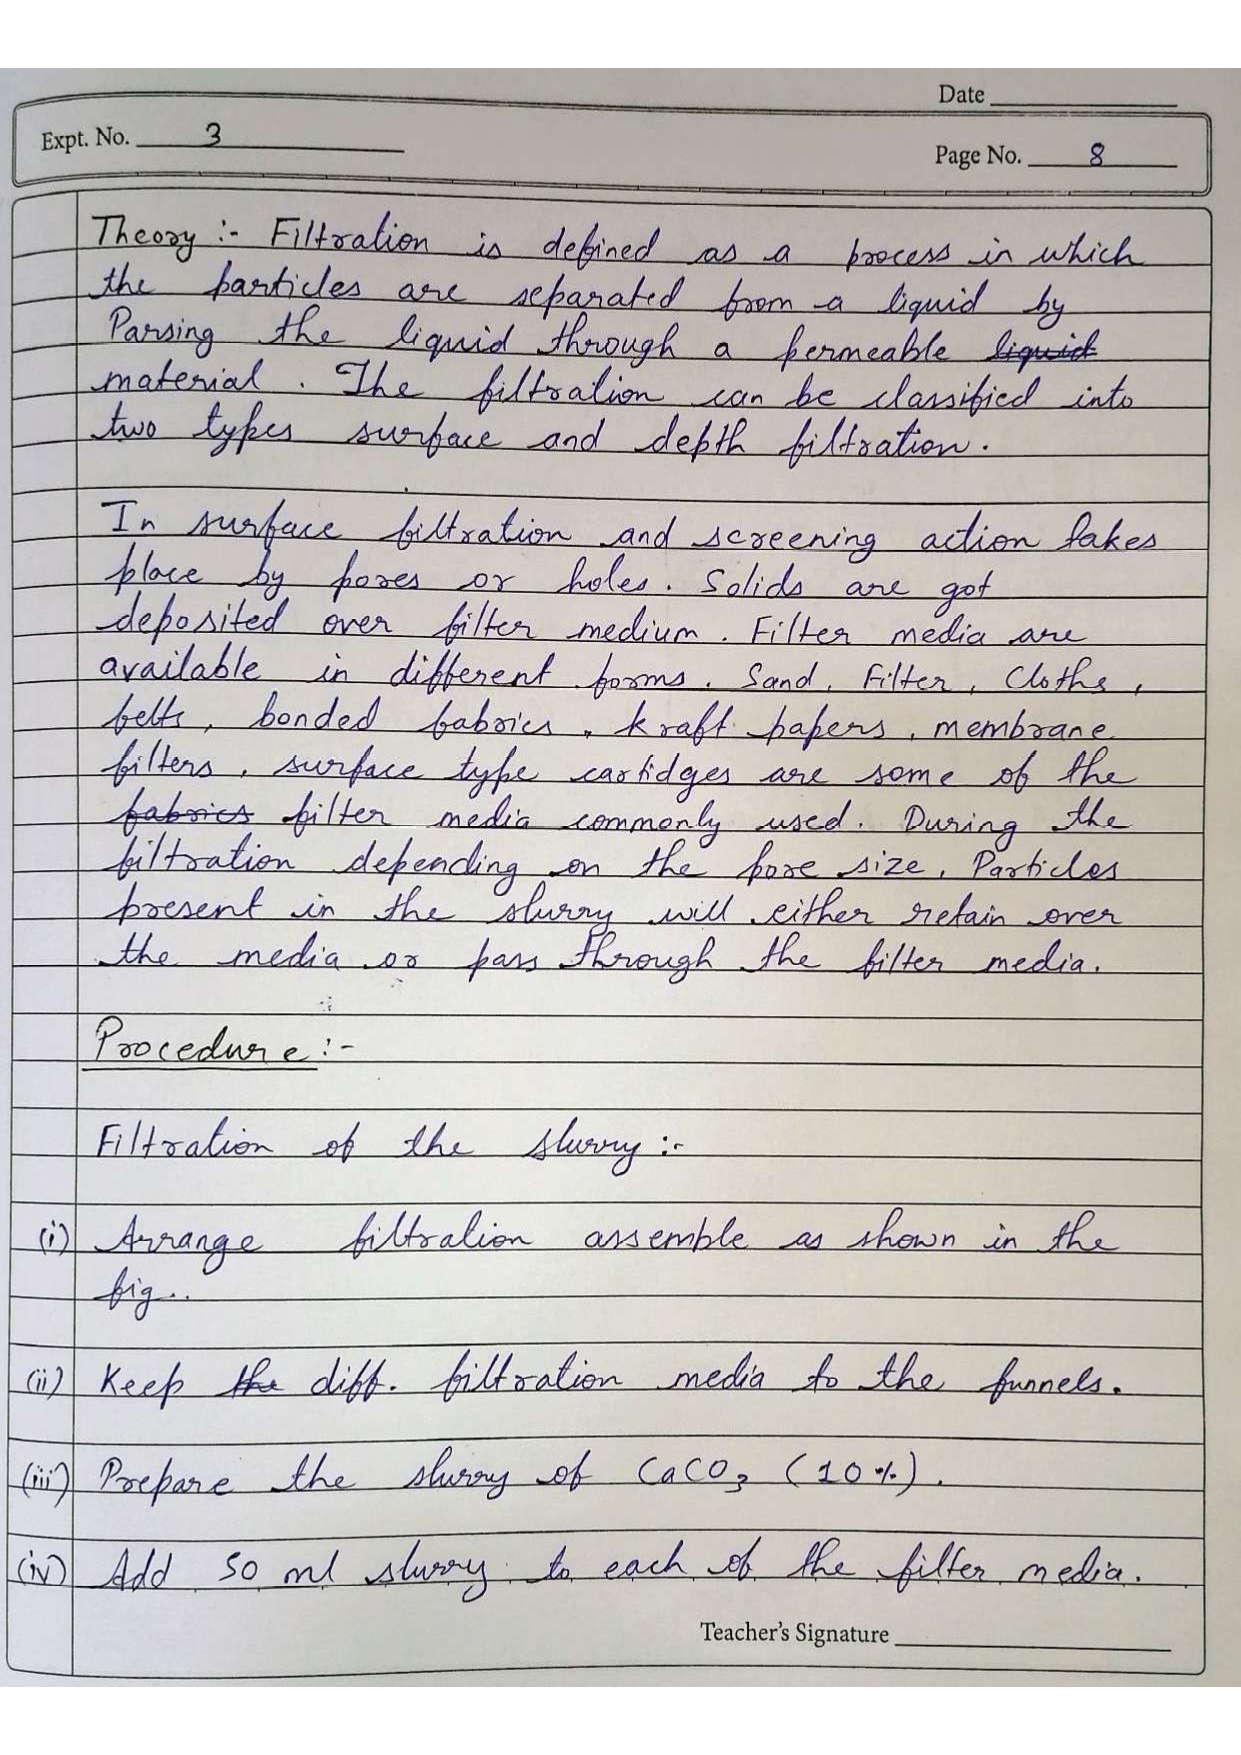 Date
Expt. No. 3
Page No. 8
Theory :- Filtration is defined as a process in which
the particles are separated from a liquid by
Parsing the liquid through a permeable liquid
material. The filtration can be classified into
two types surface and depth filtration.
In surface filtration and screening action takes
place by pores or holes. Solids are got
deposited over filter medium. Filter media are
available in different forms. Sand, Filter, Cloths,
belts, bonded fabrics, kraft papers, membrane
filters, surface type cartidges are some of the
fabrics filter media commonly used. During the
filtration depending on the pore size, Particles
present in the slurry will either retain over
the media or pass through the filter media.
Procedure :-
Filtration of the slurry :-
(i) Arrange filtration assemble as shown in the
fig..
(ii) Keep the diff. filtration media to the funnels.
(iii) Prepare the slurry of CaCO3 (10%).
(iv) Add 50 ml slurry to each of the filter media.
Teacher's Signature